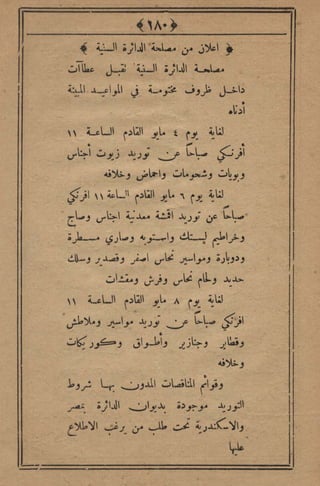 ﴿ ٦٨٠ ﴾
﴿ اعلان من مصلحة الدائرة السنية ﴾
مصلحة الدائرة السنية تقبل عطاآت
داخل ظروف مختومة في المواعيد المبينة
أدناه
لغاية يوم ٤ مايو القادم الساعة ١١
أفرنكي صباحًا عن توريد زيوت أجناس
وبويات وشحومات واحماض وخلافه
لغاية يوم ٦ مايو القادم الساعة ١١ افرنكي
صباحًا عن توريد اقمشة معدنية اجناس وصاج
وخراطيم ليستك واستوبه وصاري مسطرة
ودوبارة ومواسير نحاس اصفر وقصدير وسلك
حديد ولحام نحاس وفرش ومقشات
لغاية يوم ٨ مايو القادم الساعة ١١
افرنكي صباحًا عن توريد مواسير وملاطش
وقطاير وجنازير وأطواق وكوريكات
وخلافه
وقوائم المناقصات المدون بها شروط
التوريد موجودة بديوان الدائرة بمصر
والاسكندرية تحت طلب من يرغب الاطلاع
عليها